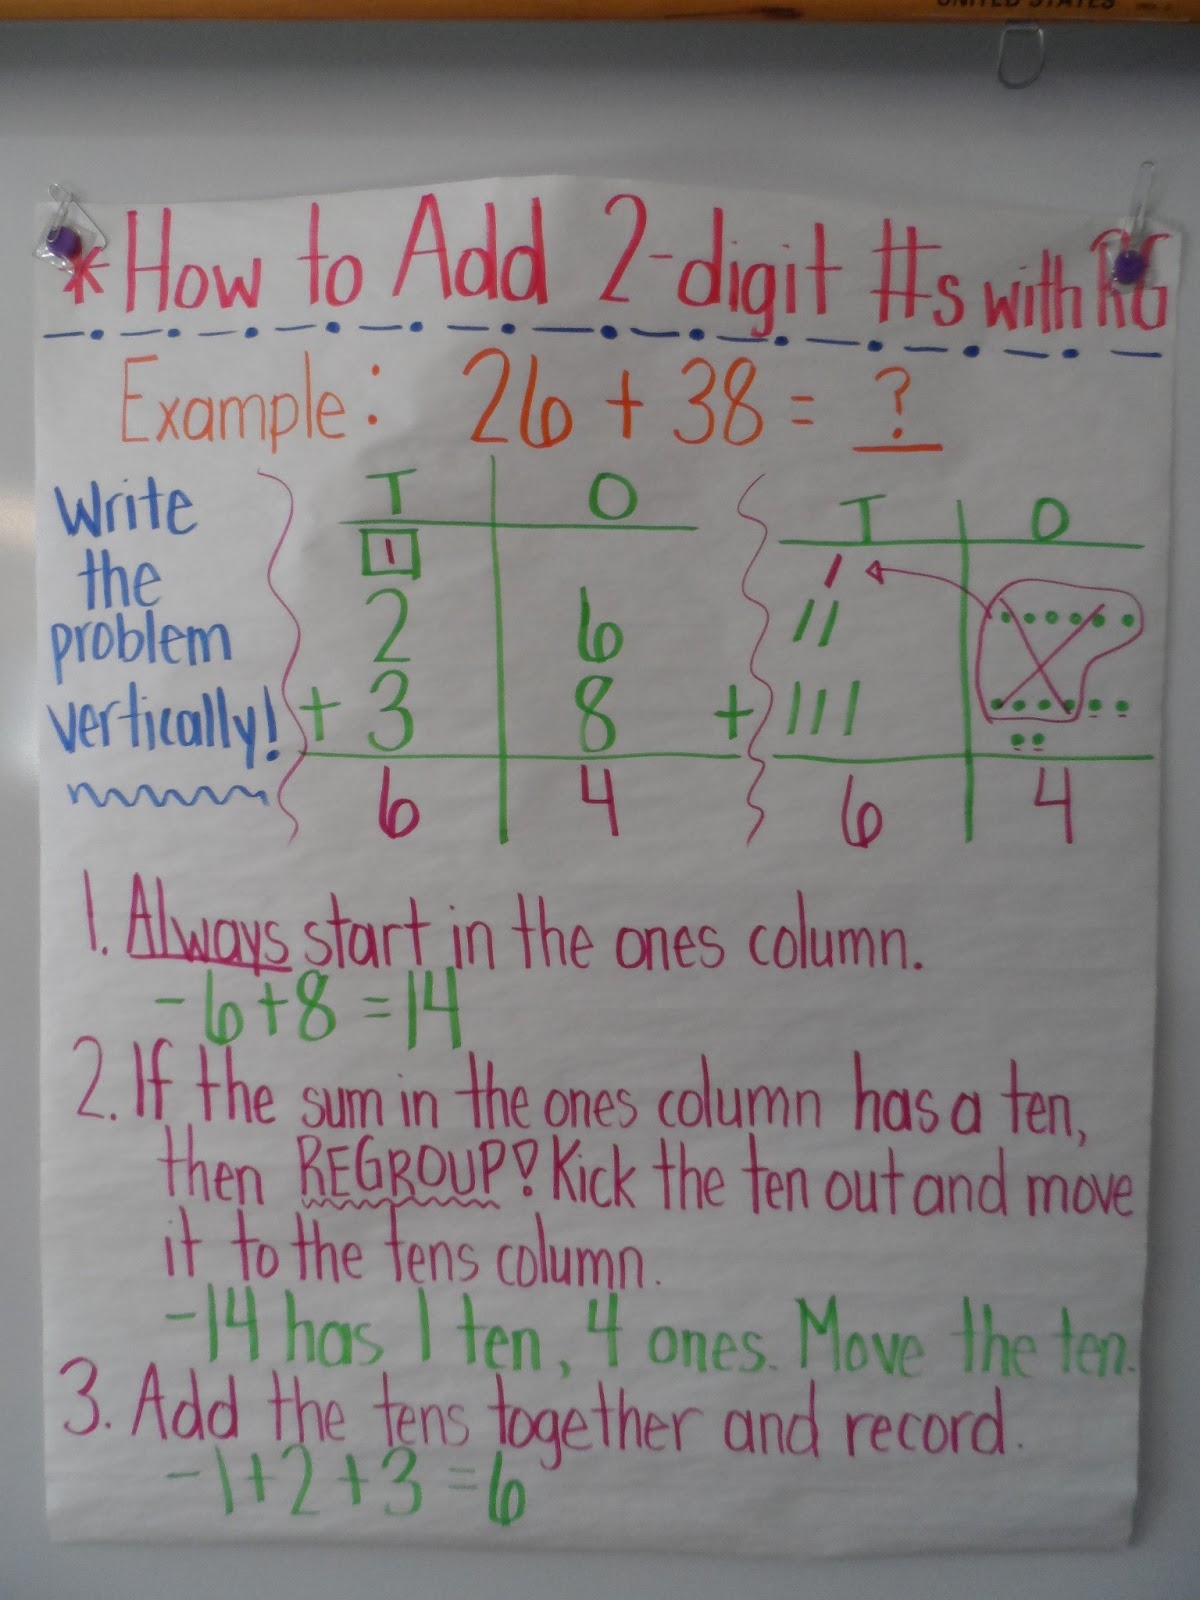 UNITED STATES
* How to Add 2-digit #s with RG
Example: 26 + 38 = ?
Write
the
problem
vertically!
T O
1
2 6
+ 3 8
6 4
T O
+
6 4
1. Always start in the ones column.
- 6 + 8 = 14
2. If the sum in the ones column has a ten,
then REGROUP! Kick the ten out and move
it to the tens column.
- 14 has 1 ten, 4 ones. Move the ten.
3. Add the tens together and record.
- 1 + 2 + 3 = 6